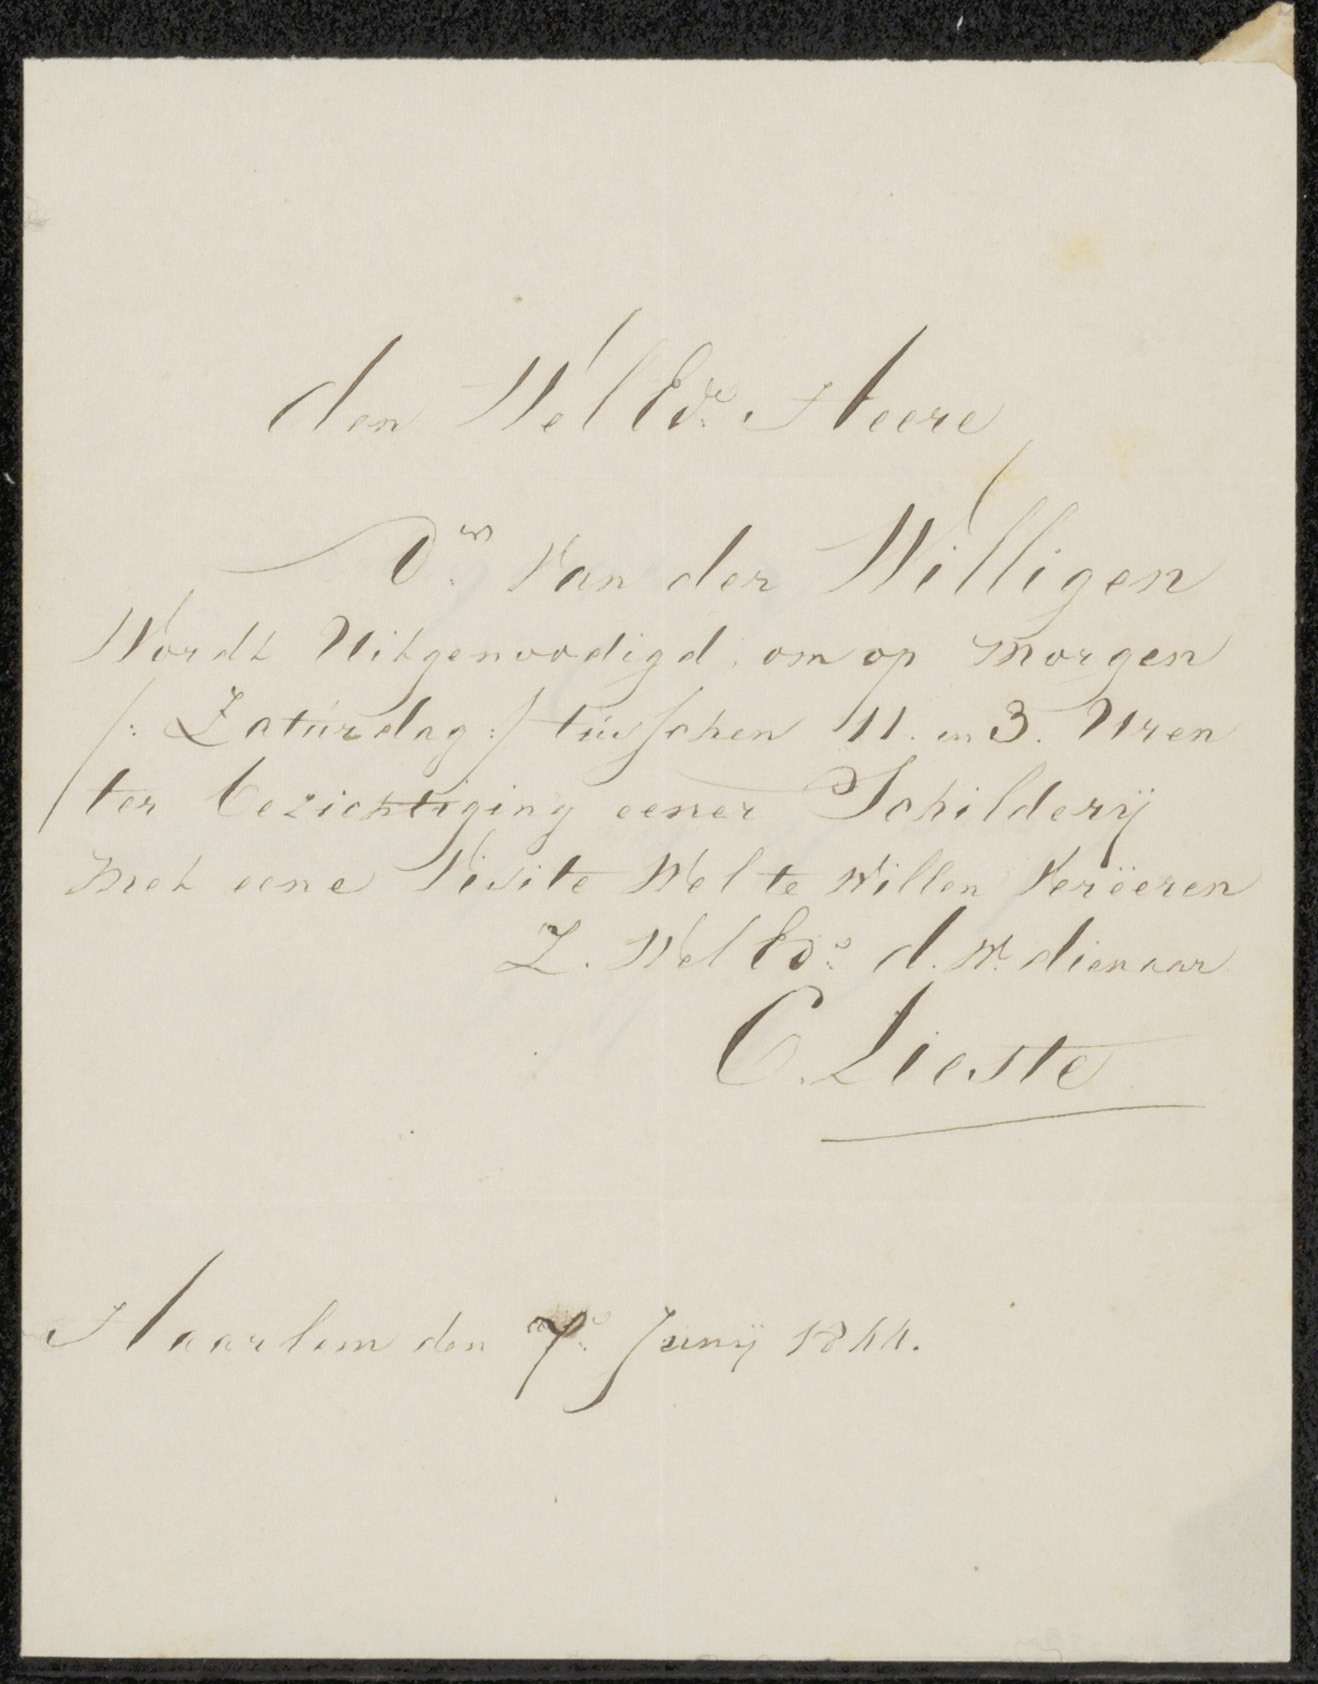 den WelEdr. Heere
Dr. Van der Willigen
Wordt Uitgenoodigd, om op Morgen
/: Zaturdag :/ tusschen 11. en 3. Uren
ter bezichtiging eener Schilderÿ
Met eene Visite Wel te Willen Verëeren
Z. WelEds: d. W. dienaar
C. Lieste
Haarlem den 7e. Junÿ 1844.